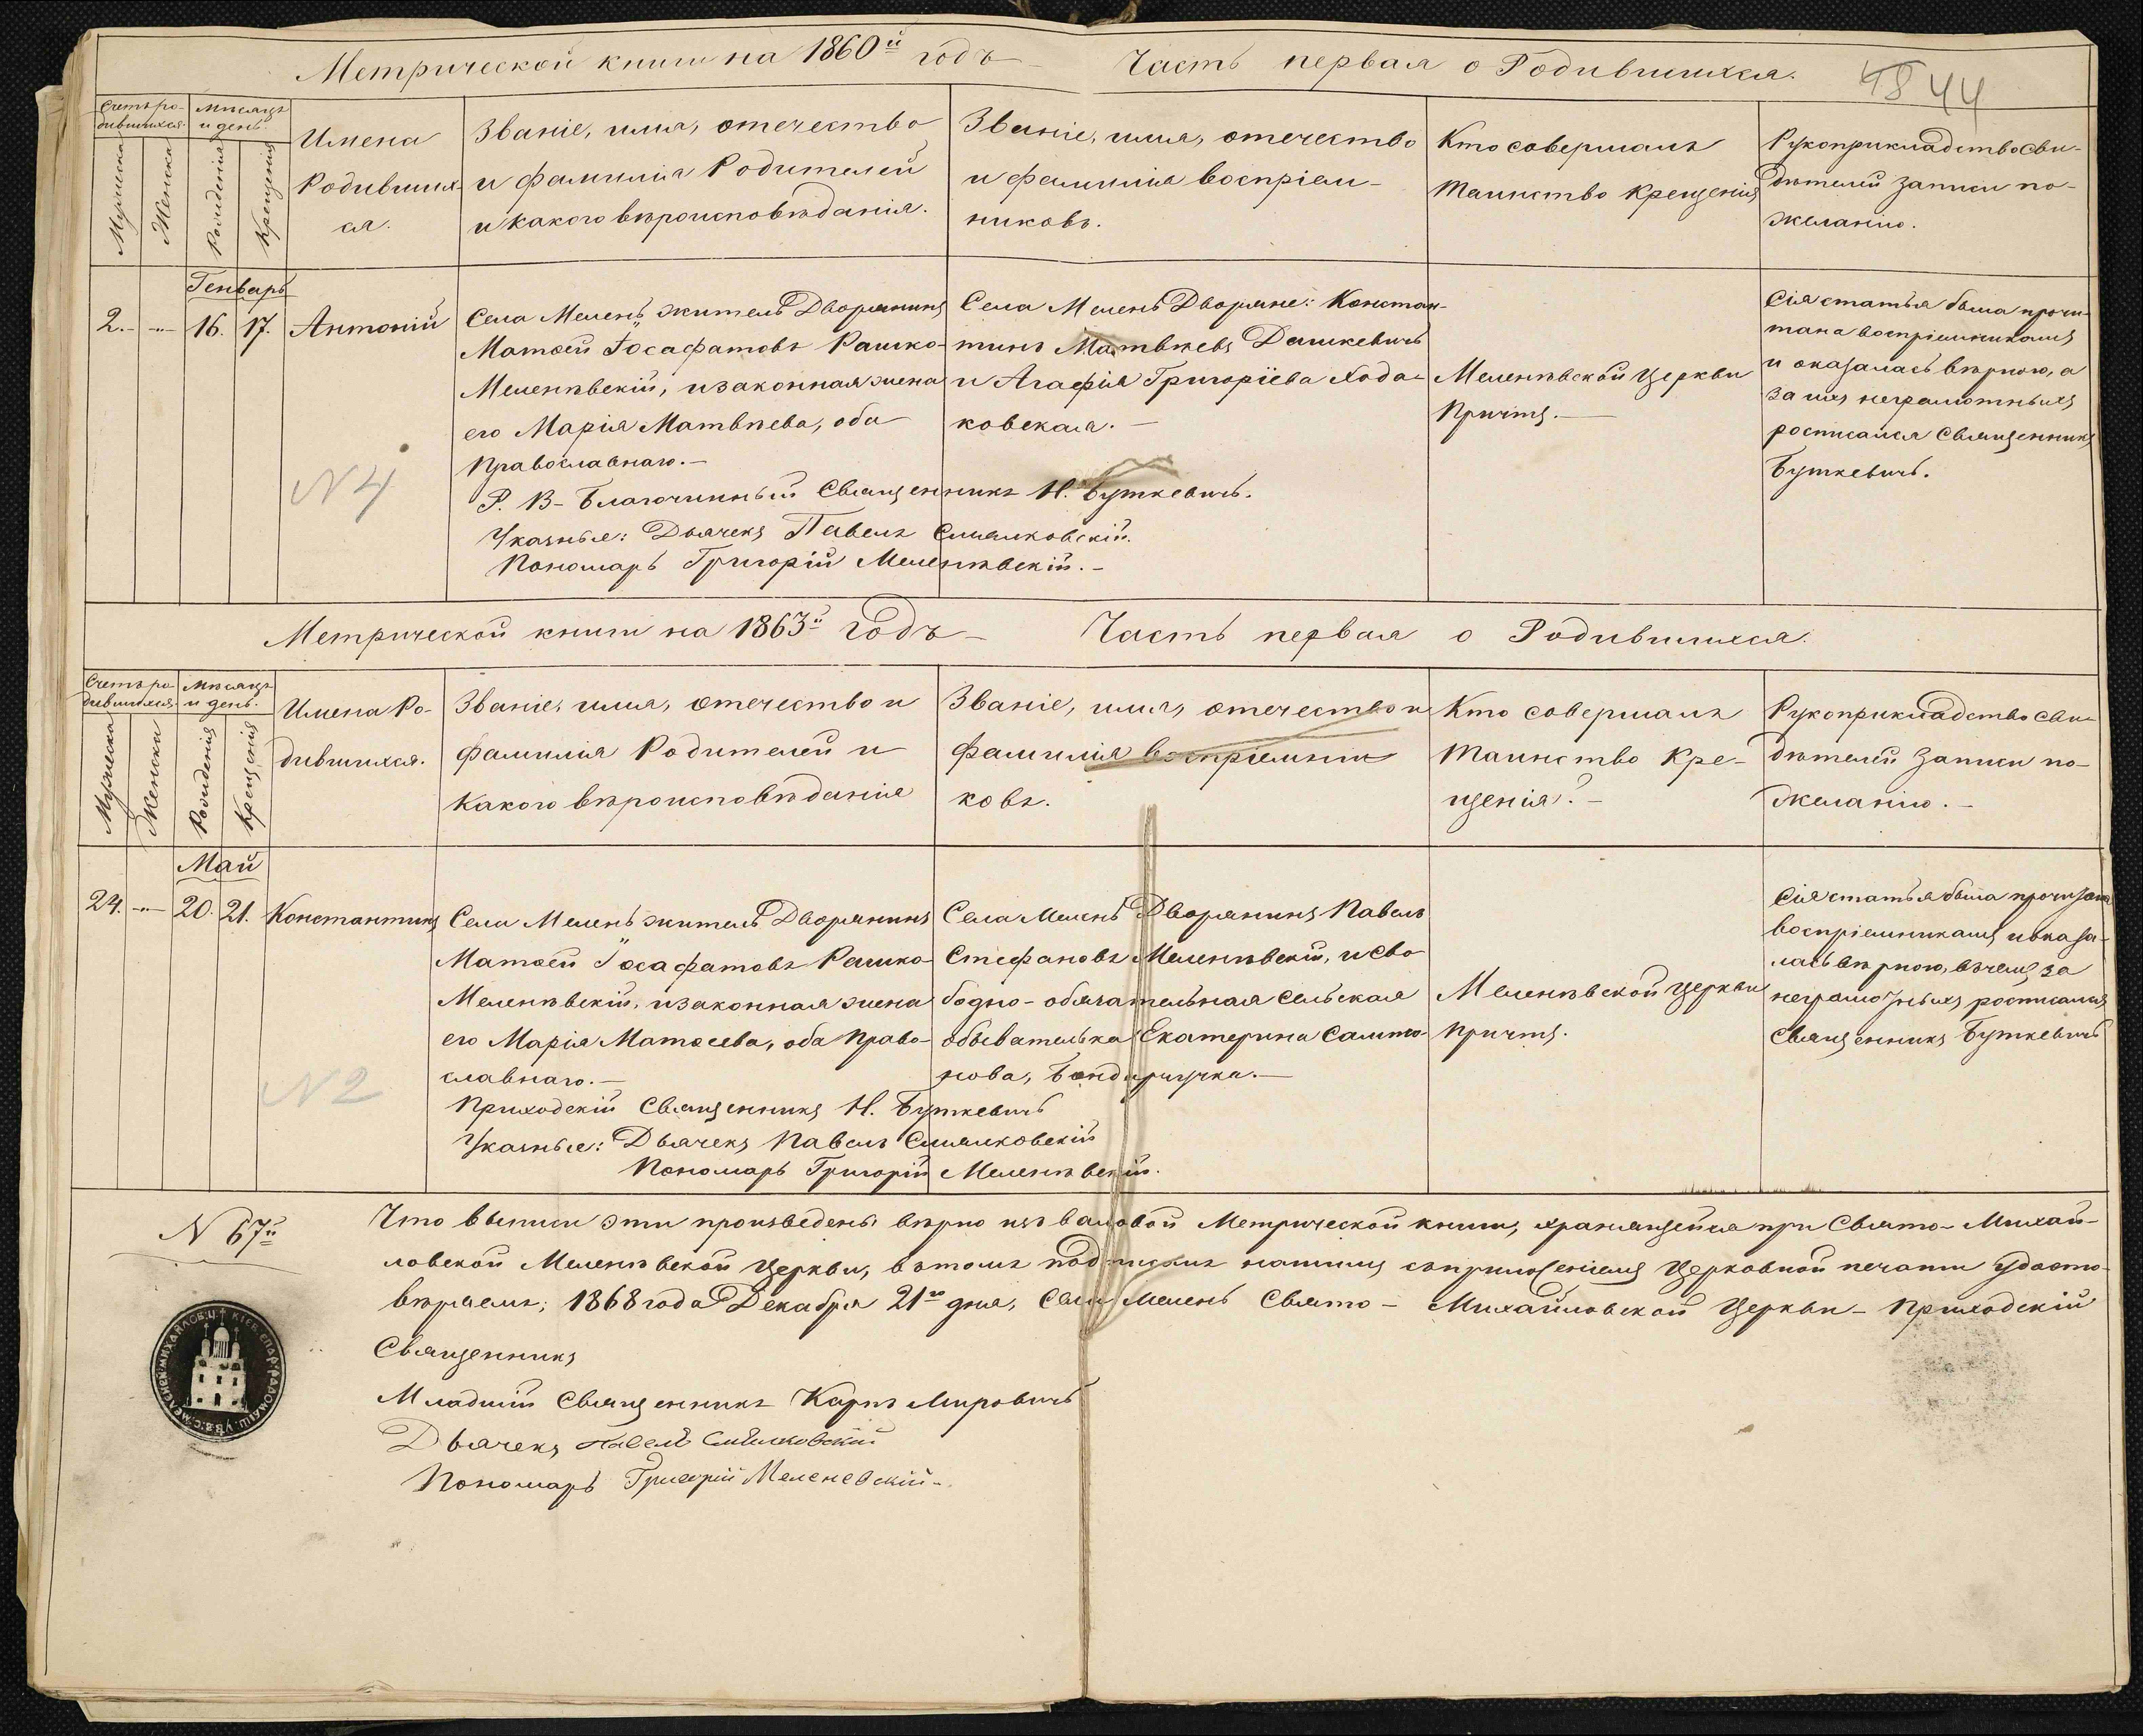 Метрической книги на 1860й годъ — Часть первая о Родившихся.
48 44
Счетъ ро-
дившихся.
Мужеска
Женска
Мѣсяцъ
и день.
Рожденія
Крещенія
Имена
Родивших-
ся.
Званіе, имя, отечество
и фамилія Родителей
и какого вѣроисповѣданія.
Званіе, имя, отечество
и фамилія воспріем-
никовъ.
Кто совершалъ
таинство крещенія
Рукоприкладство сви-
дѣтелей записи по-
желанію.
Генварь
2. — 16. 17. Антоній
Села Мелень житель Дворянинъ
Матѳей Іосафатовъ Рашко-
Меленѣвскій, и законная жена
его Марія Матвѣева, оба
Православнаго. —
Села Мелень Дворяне: Констан-
тинъ Матвѣевъ Дашкевичъ
и Агафія Григоріева Хода-
ковская. —
Меленѣвской Церкви
Причтъ. —
Сія статья была прочи-
тана воспріемникамъ
и оказалась вѣрною, а
за ихъ неграмотныхъ
росписался Священникъ
Буткевичъ.
N 4
Р. В- Благочинный Священникъ Н. Буткевичъ.
Указные: Дьячекъ Павелъ Смѣлковскій.
Пономарь Григорій Меленѣвскій. —
Метрической книги на 1863й годъ — Часть первая о Родившихся.
Счетъ ро-
дившихся.
Мужеска
Женска
Мѣсяцъ
и день.
Рожденія
Крещенія
Имена Ро-
дившихся.
Званіе, имя, отечество и
фамилія Родителей и
какого вѣроисповѣданія
Званіе, имя, отечество и
фамилія воспріемни
ковъ.
Кто совершалъ
таинство Кре-
щенія? —
Рукоприкладство сви-
дѣтелей записи по-
желанію. —
Май
24. — 20. 21. Константинъ
Села Мелень житель Дворянинъ
Матѳей Іосафатовъ Рашко-
Меленѣвскій, и законная жена
его Марія Матѳеева, оба Право-
славнаго. —
Села Мелень Дворянинъ Павелъ
Стефановъ Меленѣвскій, и сво
бодно-обязательная сельская
обывателька Екатерина
нова, —
Меленѣвской Церкви
Причтъ.
Сія статья была прочитана
воспріемникамъ и оказа-
лась вѣрною, въ чемъ за
неграмотныхъ росписался
Священникъ Буткевичъ
N 2
Приходскій Священникъ Н. Буткевичъ
Указные: Дьячекъ Павелъ Смѣлковскій
Пономарь Григорій Меленѣвскій.
N 67й
Что выписи эти произведены вѣрно изъ валовой Метрической книги, хранящейся при Свято-Михай-
ловской Меленѣвской Церкви, въ томъ подписомъ нашимъ съ приложеніемъ Церковной печати удосто-
вѣряемъ; 1868 года Декабря 21го дня, Села Мелень Свято-Михайловской Церкви — Приходскій
Священникъ
Младшій Священникъ Карпъ Мировичъ
Дьячекъ Павелъ Смѣлковскій
Пономарь Григорій Меленевскій —